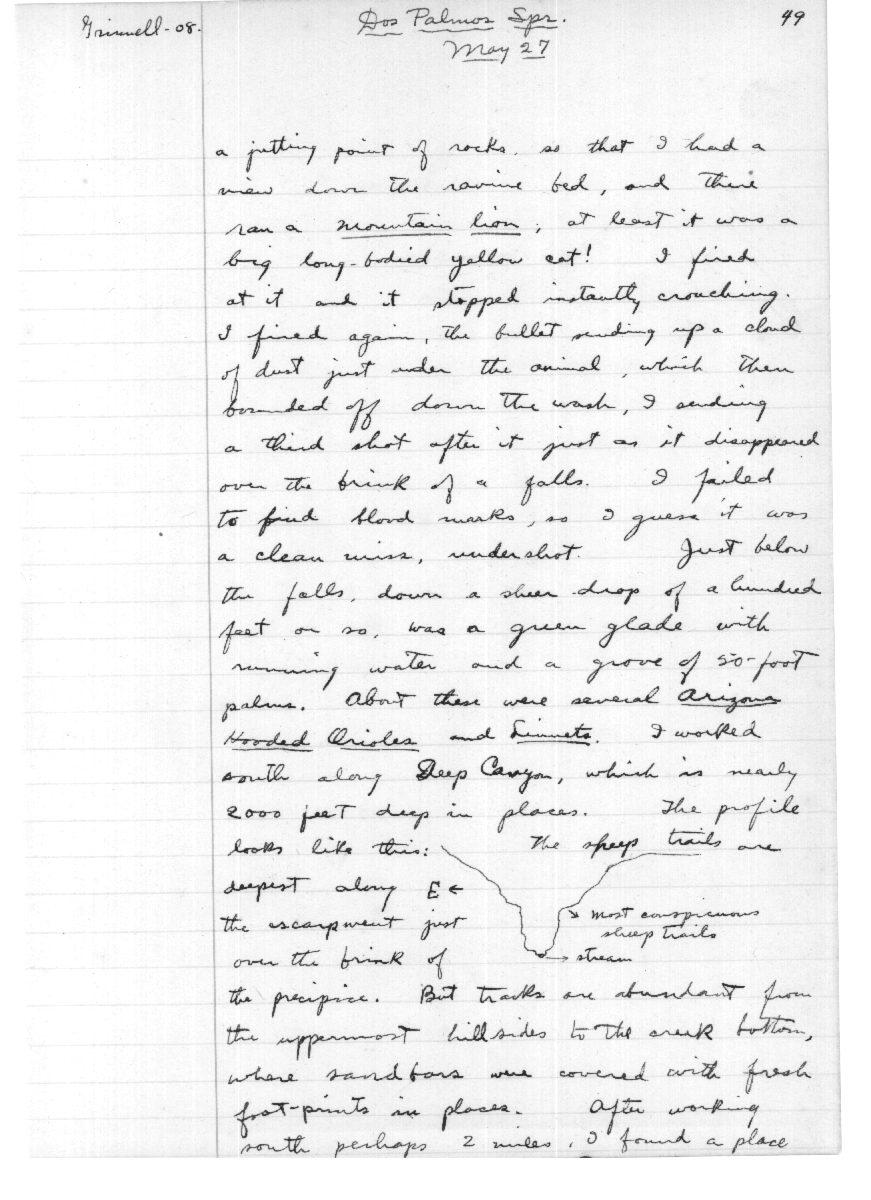 Grinnell-08.
Dos Palmos Spr.
49
May 27
a jutting point of rocks, so that I had a
view down the ravine bed, and there
ran a mountain lion; at least it was a
big long-bodied yellow cat! I fired
at it and it stopped instantly, crouching.
I fired again, the bullet sending up a cloud
of dust just under the animal, which then
bounded off down the wash, I sending
a third shot after it just as it disappeared
over the brink of a falls. I failed
to find blood marks, so I guess it was
a clean miss, undershot. Just below
the falls, down a sheer drop of a hundred
feet or so, was a green glade with
running water and a grove of 50-foot
palms. About these were several Arizona
Hooded Orioles and Linnets. I worked
south along Deep Canyon, which is nearly
2000 feet deep in places. The profile
looks like this: The sheep trails are
deepest along E←
the escarpment just
most conspicuous
sheep trails
over the brink of
→ stream
the precipice. But tracks are abundant from
the uppermost hillsides to the creek bottom,
where sandbars were covered with fresh
foot-prints in places. After working
south perhaps 2 miles, I found a place